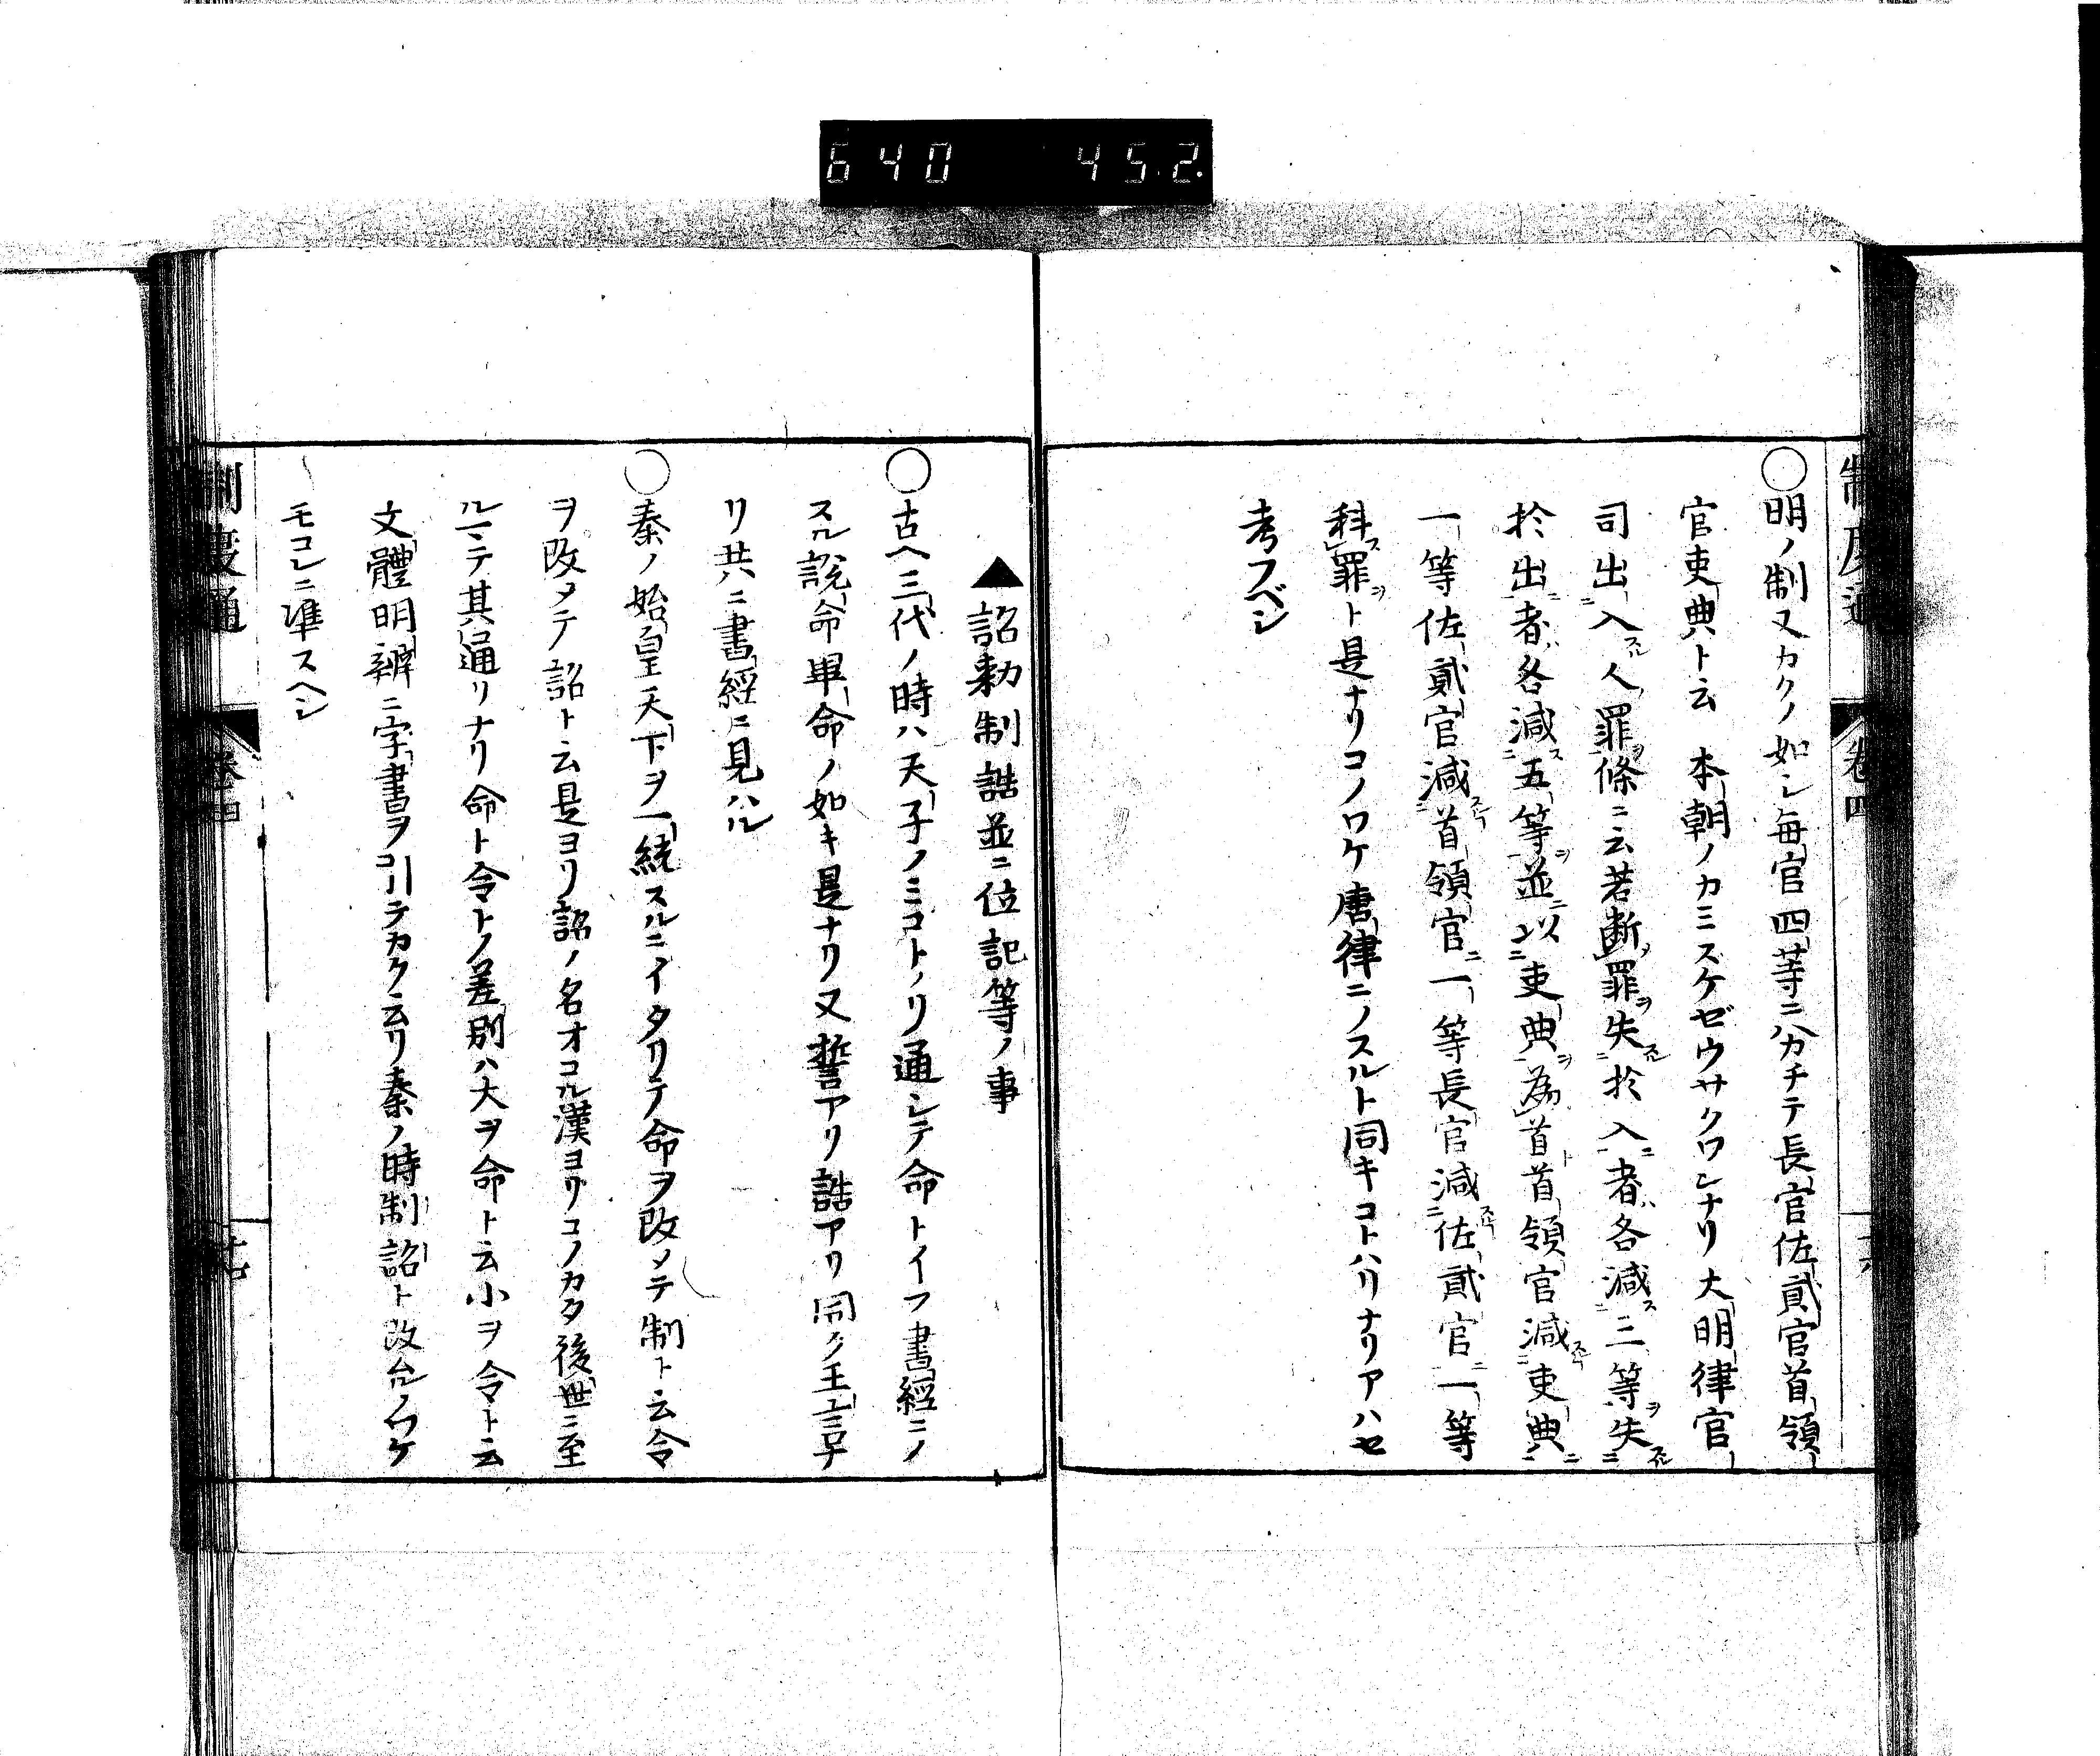 640 45.2.
制度通 卷四
○明ノ制又カクノ如シ毎官四等ニ分カチテ長官佐貳官首領
官吏典ト云 本朝ノカミスケゼウサクワンナリ大明律官
司出入人罪條ニ云若断罪失於入者各減三等失
於出者各減五等並以吏典為首首領官減吏典
一等佐貳官減首領官一等長官減佐貳官一等
科罪ト是ナリコノワケ唐律ニノスルト同キコトハリナリアハセ
考フベシ
▲詔勅制誥並ニ位記等ノ事
○古ヘ三代ノ時ハ天子ノミコトノリ通シテ命トイフ書經ニノ
スル説命畢命ノ如キ是ナリ又誓アリ誥アリ同ク王言ナ
リ共ニ書經ニ見ハル
○秦ノ始皇天下ヲ一統スルニイタリテ命ヲ改メテ制ト云令
ヲ改メテ詔ト云是ヨリ詔ノ名オコル漢ヨリコノカタ後世ニ至
ルマテ其通リナリ命ト令トノ差別ハ大ヲ命ト云小ヲ令ト云
文體明辨ニ字書ヲ引テカク云リ秦ノ時制詔ト改ルノワケ
モコレニ準スヘシ
制度通 卷四